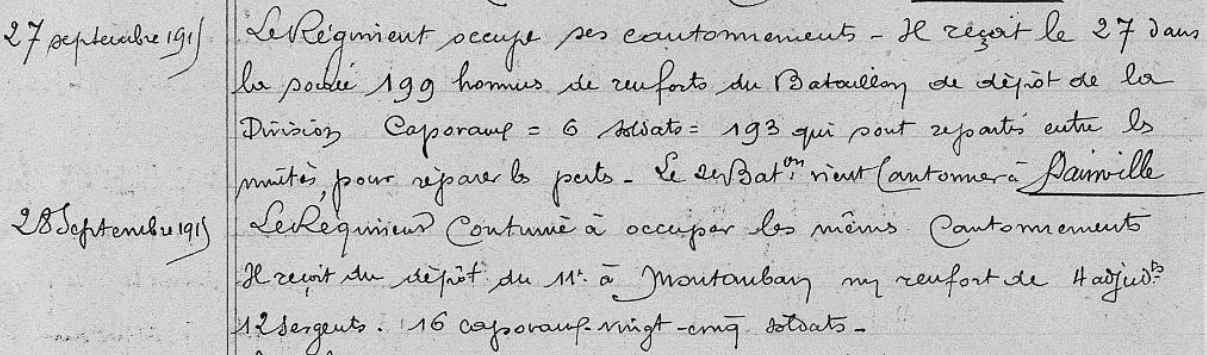 27 septembre 1915 Le Régiment occupe ses cantonnements - Il reçoit le 27 dans
la soirée 199 hommes de renforts du Bataillon de dépôt de la
Division Caporaux = 6 soldats = 193 qui sont repartis entre les
unités, pour réparer les pertes - Le 2e Bat.on vient Cantonner à Dainville
28 Septembre 1915 Le Régiment Continue à occuper les mêmes Cantonnements
Il reçoit du dépôt du 11e à Montauban un renfort de 4 adjud.ts
12 sergents. 16 caporaux - vingt-cinq soldats -